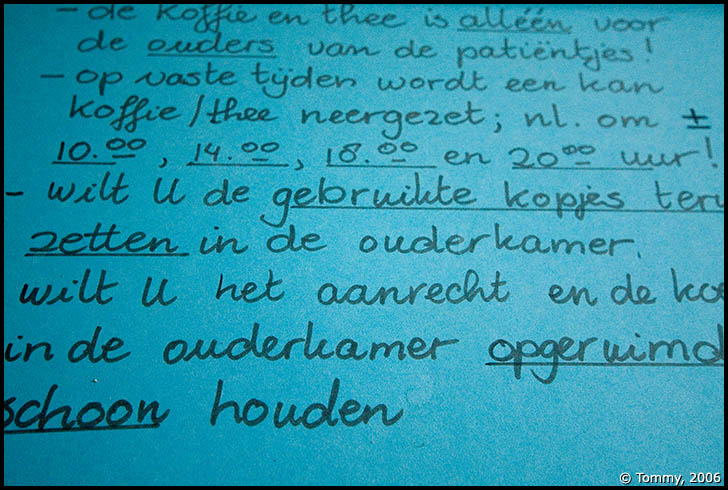 - de koffie en thee is alléén voor
de ouders van de patiëntjes!
- op vaste tijden wordt een kan
koffie/thee neergezet; nl. om ±
10.00, 14.00, 18.00 en 20.00 uur!
- wilt U de gebruikte kopjes teru
zetten in de ouderkamer.
wilt U het aanrecht en de
in de ouderkamer opgeruimd
schoon houden
© Tommy, 2006